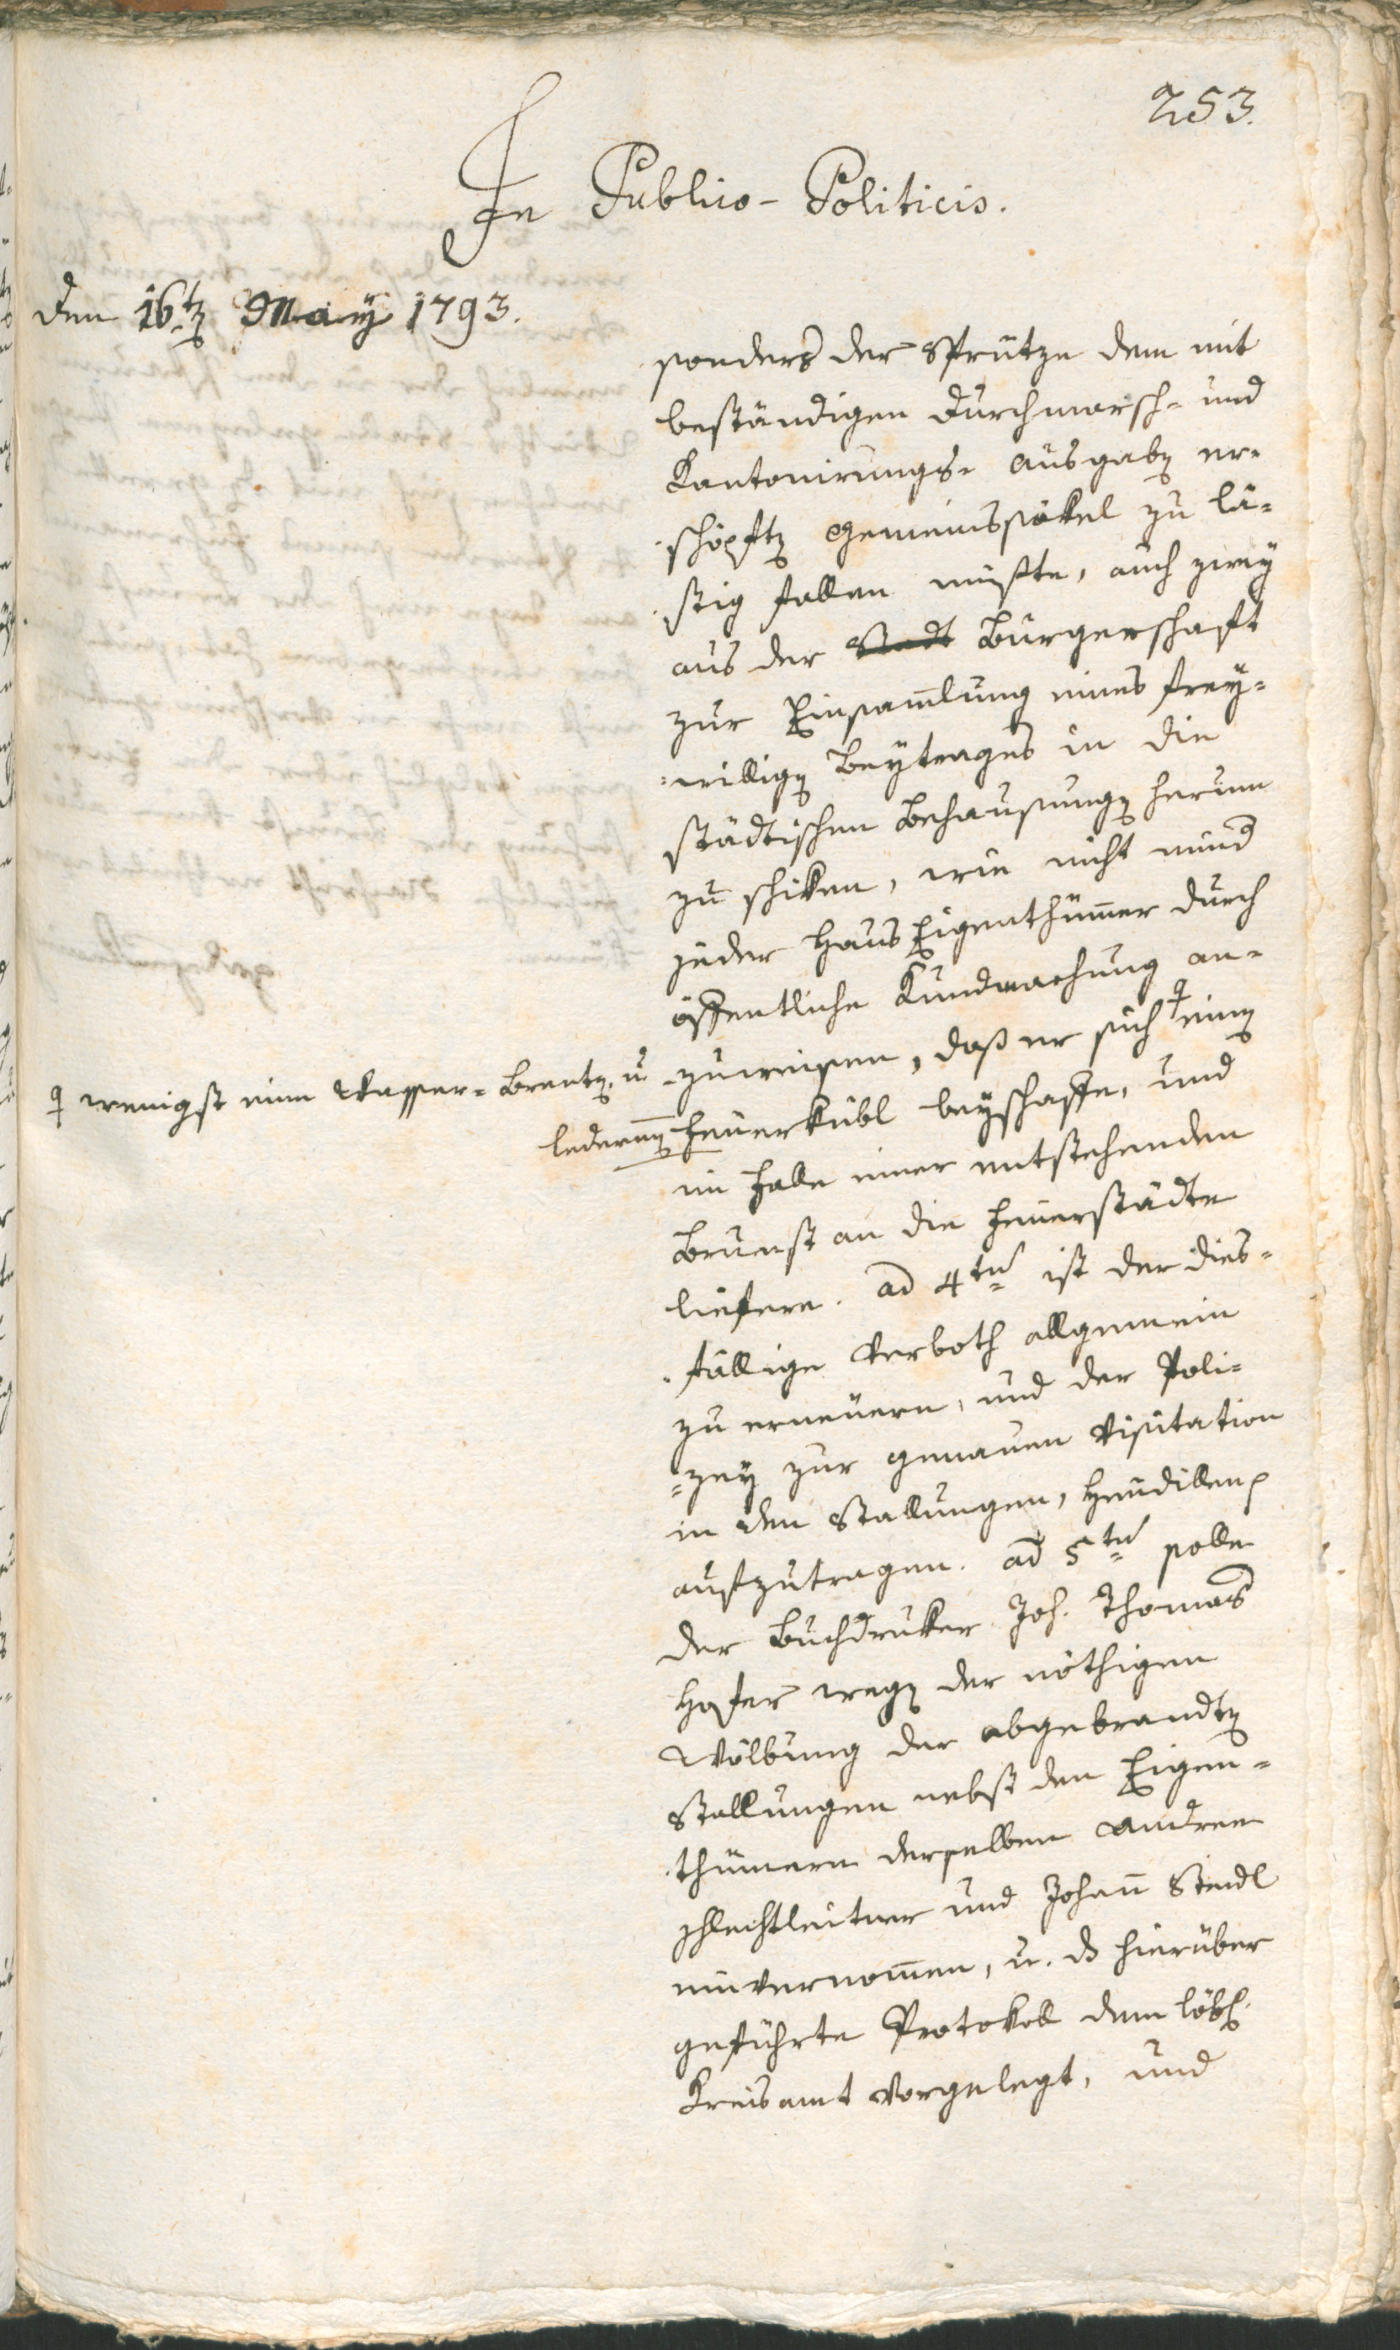 253.
In Publico-Politicis.
Den 16t(en) May 1793.
sonders der Sprütze dem mit
beständigen Durchmarsch- und
Kantonirungs- Ausgab(en) er-
schöpft(en) Gemeinssäkel zu lä-
stig fallen müßte, auch zwey
aus der Stadt Bürgerschaft
zur Einsam̄lung eines frey-
willig(en) Beytrages in die
städtischen Behausung(en) herum
zu schiken, wie nicht mind
jeder Haus Eigenthüm̄er durch
öffentliche Kundmachung an-
zuweisen, daß er sich ♀ ein(en)
♀ wenigst eine Wasser-Brent(en), u.
ledern(en) Feüerkübl beyschaffe, und
im Falle einer entstehenden
Brunst an die Feüerstädte
liefere. ad 4tu(m) ist der dies-
fällige Verboth allgemein
zu erneüern, und der Poli-
zey zur genauen Visitation
in den Stallungen, Heüdillen
aufzutragen. ad 5tu(m) solle
der Buchdruker Joh. Thomas
Hofer weg(en) der nöthigen
Wölbung der abgebrandt(en)
Stallungen nebst den Eigen-
thümern derselben Andree
Schlechtleitner und Johan̄ Steidl
einvernom̄en, u. d(as) hierüber
geführte Protokoll dem löbl.
Kreisamt vorgelegt, und